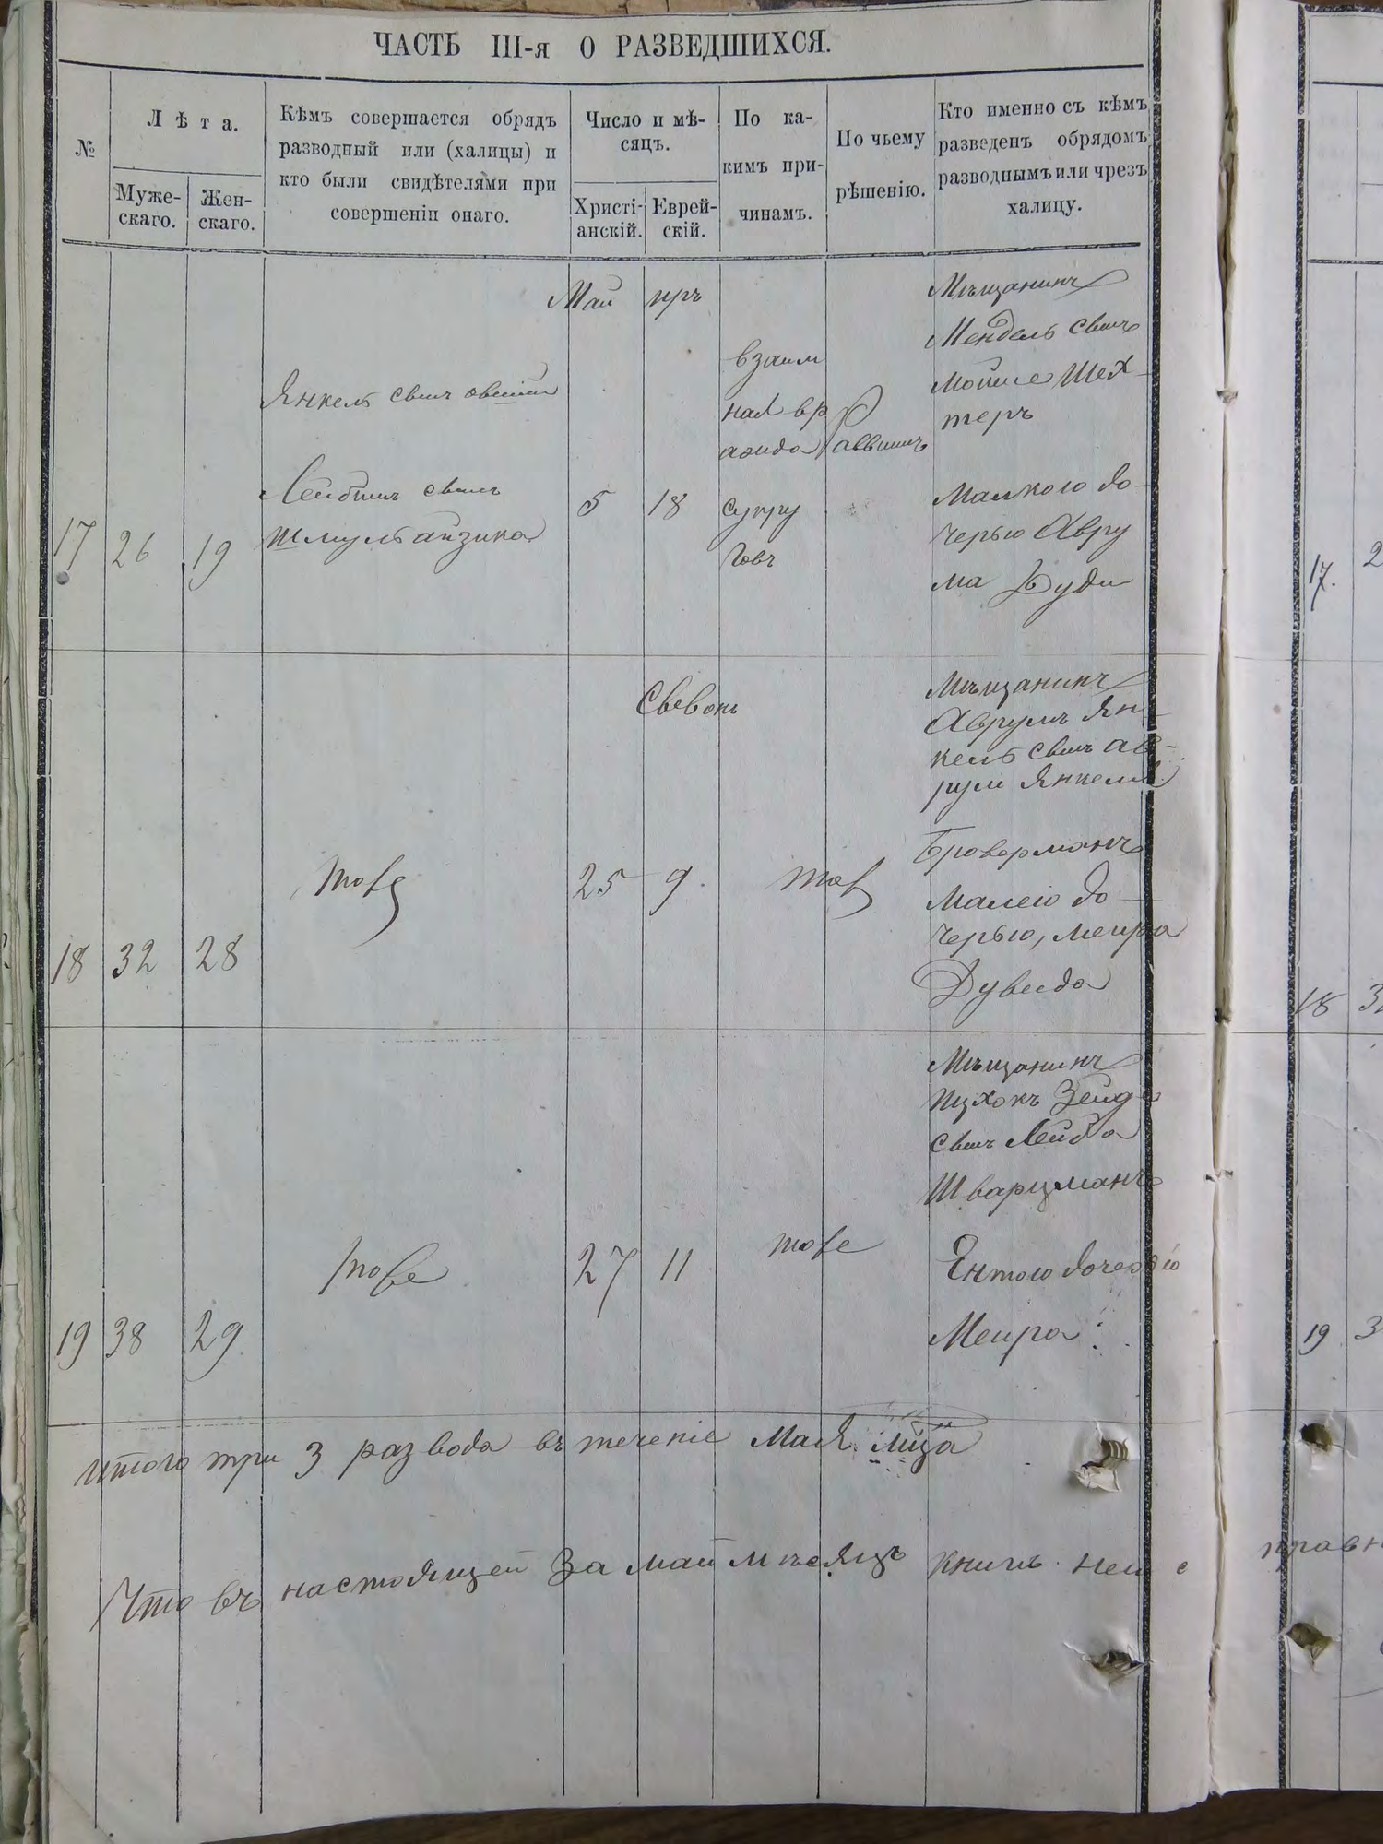 ЧАСТЬ III-я О РАЗВЕДШИХСЯ.
№
Лѣта.
Муже-
скаго.
Жен-
скаго.
Кѣмъ совершается обрядъ
разводный или (халицы) и
кто были свидѣтелями при
совершеніи онаго.
Число и мѣ-
сяцъ.
Христі-
анскій.
Еврей-
скій.
По ка-
кимъ при-
чинамъ.
По чьему
рѣшенію.
Кто именно съ кѣмъ
разведенъ обрядомъ
разводнымъ или чрезъ
халицу.
17
26
19
Янкель свинъ
Лейбишъ свинъ
Шмуль Айзика
Май
5
иръ
18
взаим
ная вр
ажда
супру
говъ
Раввинъ
Мѣщанинъ
Мендель свинъ
Мойше Шех-
теръ
Малкою до
черью Авру
ма Дуди
18
32
28
тоже
25
Сивонъ
9.
тож
Мѣщанинъ
Аврумъ Ян-
кель свинъ Ав-
рум Янкеля
Броверманъ
Малею до-
черью, Меира
Дувида
19
38
29.
тоже
27
11
тоже
Мѣщанинъ
Ицхокъ Зейда
свинъ Лейба
Шварцманъ
Ентою дочерью
Меира
Итого три 3 развода въ теченіе Мая мца
Что въ настоящей за май мѣсяцъ книгѣ неис
17.
2
18
3
19
3